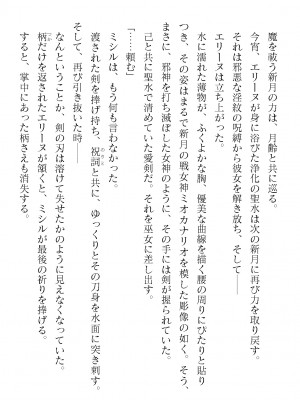 魔を祓う新月の力は、月齢と共に巡る。
今宵、エリーヌが身に浴びた浄化の聖水は次の新月に再び力を取り戻す。
それは邪悪な淫紋の呪縛から彼女を解き放ち、そして――
エリーヌは立ち上がった。
水に濡れた薄物が、ふくよかな胸、優美な曲線を描く腰の周りにぴたりと貼り
つき、その姿はまるで新月の戦女神ミオカナリオを模した彫像の如く。そう、
まさに、邪神を打ち滅ぼした女神のように、その手には剣が握られていた。
己と共に聖水で清めていた愛剣だ。それを巫女に差し出す。
「……頼む」
ミシルは、もう何も言わなかった。
渡された剣を捧げ持ち、祝詞と共に、ゆっくりとその刀身を水面に突き刺す。
そして、再び引き抜いた時――
なんということか、剣の刃は溶けて失せたかのように見えなくなっていた。
柄だけを返されたエリーヌが頷くと、ミシルが最後の祈りを捧げる。
すると、掌中にあった柄さえも消失する。